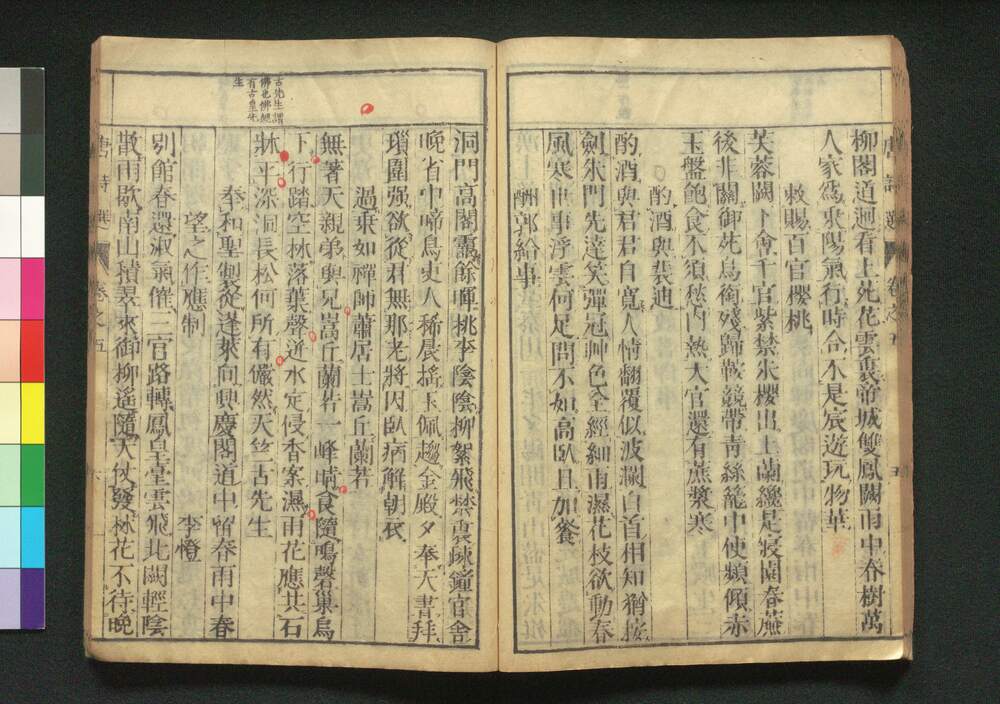 柳閣道迴看上苑花雲裏帝城雙鳳闕雨中春樹萬
人家爲乘陽氣行時令不是宸遊玩物華
敕賜百官櫻桃
芙蓉闕下會千官紫禁朱櫻出上蘭纔是寢園春薦
後非關御苑鳥銜殘歸鞍競帶青絲籠中使頻傾赤
玉盤飽食不須愁内熱大官還有蔗漿寒
酌酒與裴迪
酌酒與君君自寬人情翻覆似波瀾白首相知猶按
劍朱門先達笑彈冠艸色全經細雨濕花枝欲動春
風寒世事浮雲何足問不如高臥且加餐
酬郭給事
洞門高閣靄餘暉桃李陰陰柳絮飛禁裏疎鐘官舍
晚省中啼鳥吏人稀晨搖玉佩趨金殿夕奉天書拜
瑣圍强欲從君無那老將因臥病解朝衣
過乘如禪師蕭居士嵩丘蘭若
無著天親弟與兄嵩丘蘭若一峰晴食隨鳴磬巢烏
下行踏空林落葉聲迸水定侵香案濕雨花應共石
牀平深洞長松何所有儼然天竺古先生
古先生謂
佛也佛經
有古皇先
生
奉和聖製從蓬萊向興慶閣道中留春雨中春
望之作應制
李橙
別館春還淑氣催三宮路轉鳳皇臺雲飛北闕輕陰
散雨歇南山積翠來御柳遙隨天仗發林花不待晚
唐詩選
卷之五
五
唐詩選
卷之五
六